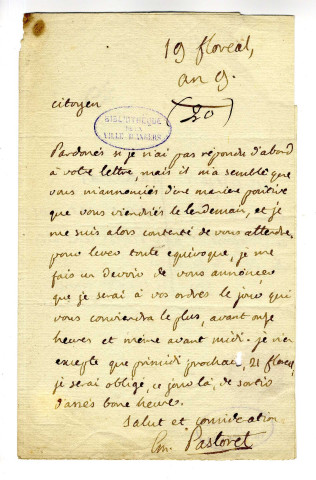 19 floreal,
an 9.
citoyen
(20)
BIBLIOTHEQUE
DE LA
VILLE D'ANGERS
Pardonés si je n'ai pas repondu d'abord
à votre lettre, mais il m'a semblé que
vous m'annonciés d'une maniere positive
que vous viendriés le lendemain, et je
me suis alors contenté de vous attendre.
pour lever toute equivoque, je me
fais un devoir de vous annoncer
que je serai à vos ordres le jour qui
vous conviendra le plus, avant onze
heures et même avant midi. je n'en
excepte que primidi prochain, 21 floreal,
je serai obligé, ce jour là, de sortir
d'assés bone heure.
Salut et consideration
Em. Pastoret